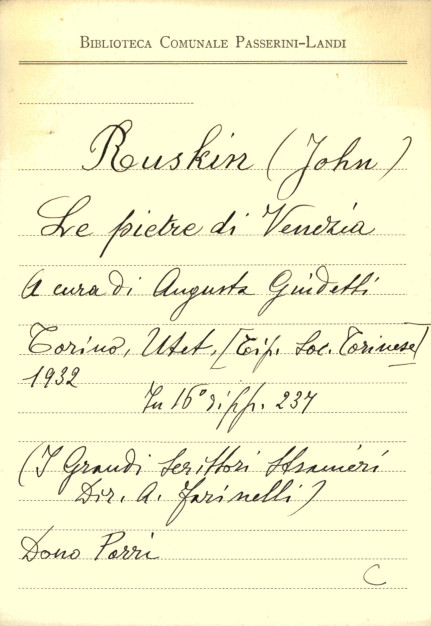 BIBLIOTECA COMUNALE PASSERINI-LANDI
Ruskin (John)
Le pietre di Venezia
A cura di Augusta Guidetti
Torino, Utet, [Tip. Soc. Torinese]
1932
In 16° di pp. 237
(I Grandi Scrittori Stranieri
Dir. A. Farinelli)
Dono Porri
C